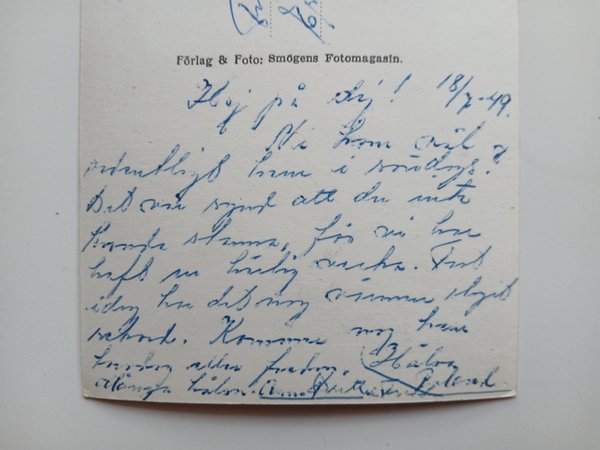 Förlag & Foto: Smögens Fotomagasin.
Hej på dej! 18/7-49.
Ni kom väl
ordentligt hem i söndags?
Det var synd att du inte
kunde stanna, för vi har
haft en härlig vecka. Fast
idag har det nog vunnit slaget
rekord. Kommer nog hem
torsdag eller fredag. Hälsa
Roland
Många hälsn.